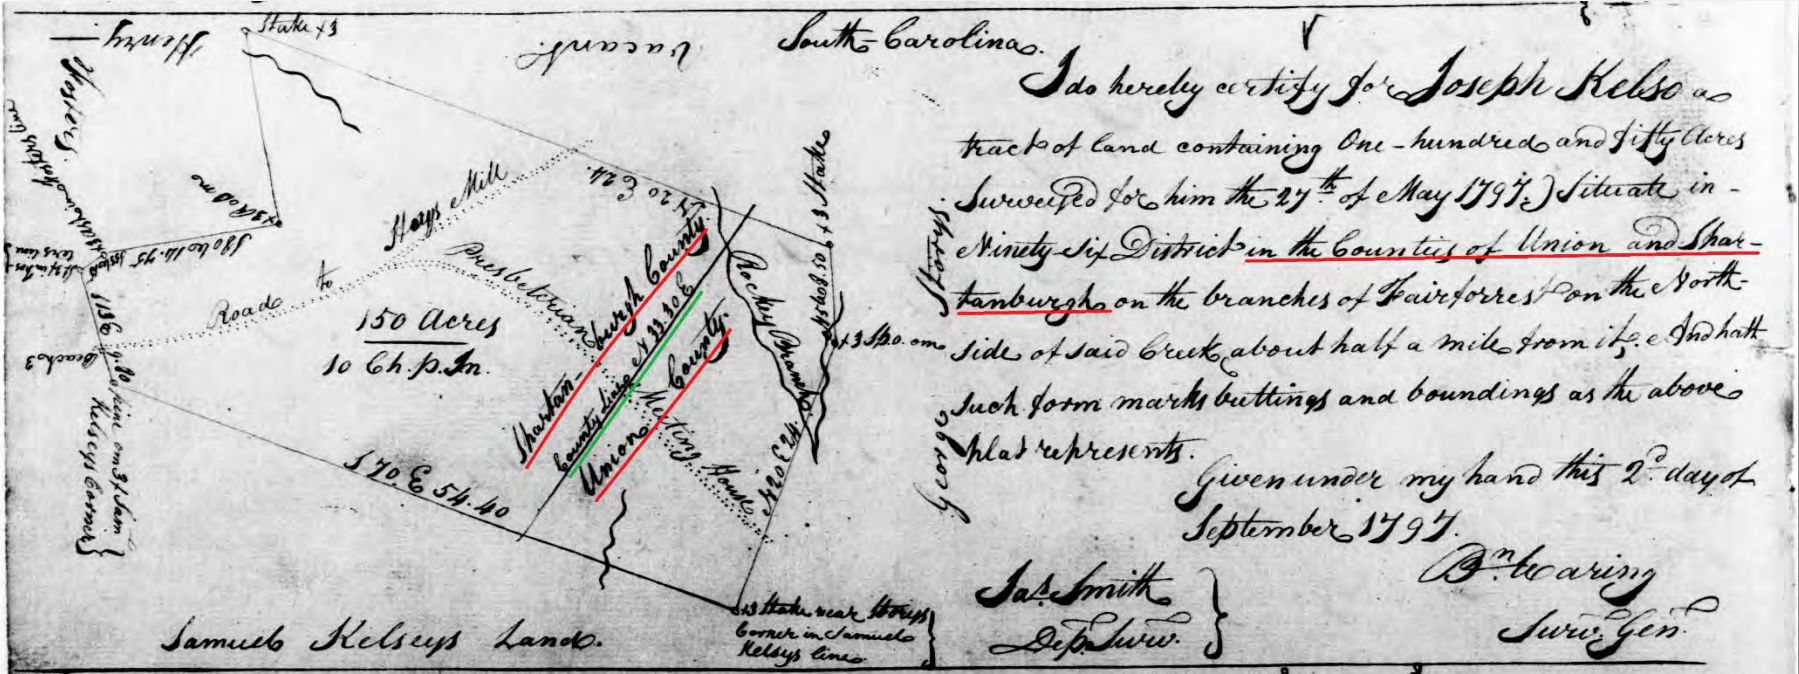 South Carolina.
I do hereby certify for Joseph Kelso a
tract of land containing One-hundred and fifty Acres
Surveyed for him the 27th of May 1797.) Situate in-
Ninety-Six District in the Counties of Union and Spar-
tanburgh on the branches of Fairforrest on the North-
side of said Creek about half a mile from it; And hath
such form marks buttings and boundings as the above
plat represents.
Given under my hand this 2d. day of
September 1797.
Bn. Waring
Surv. Genl.
Jas. Smith
Dep. Surv.
Stake x3
Henry
Fosters.
Vacant.
Road to Storys Mill
Presbeterian Meeting House
150 Acres
10 Ch. p. In.
Spartan-burgh County.
County Line N 33.30 E
Union County.
Rockey Branch
x3 Stake
George Storys.
S 70 E 54.40
Beach 3
Kelseys Corner
x3 Stake near Storys
Corner in Samuel
Kelsys line
Samuel Kelseys Land.